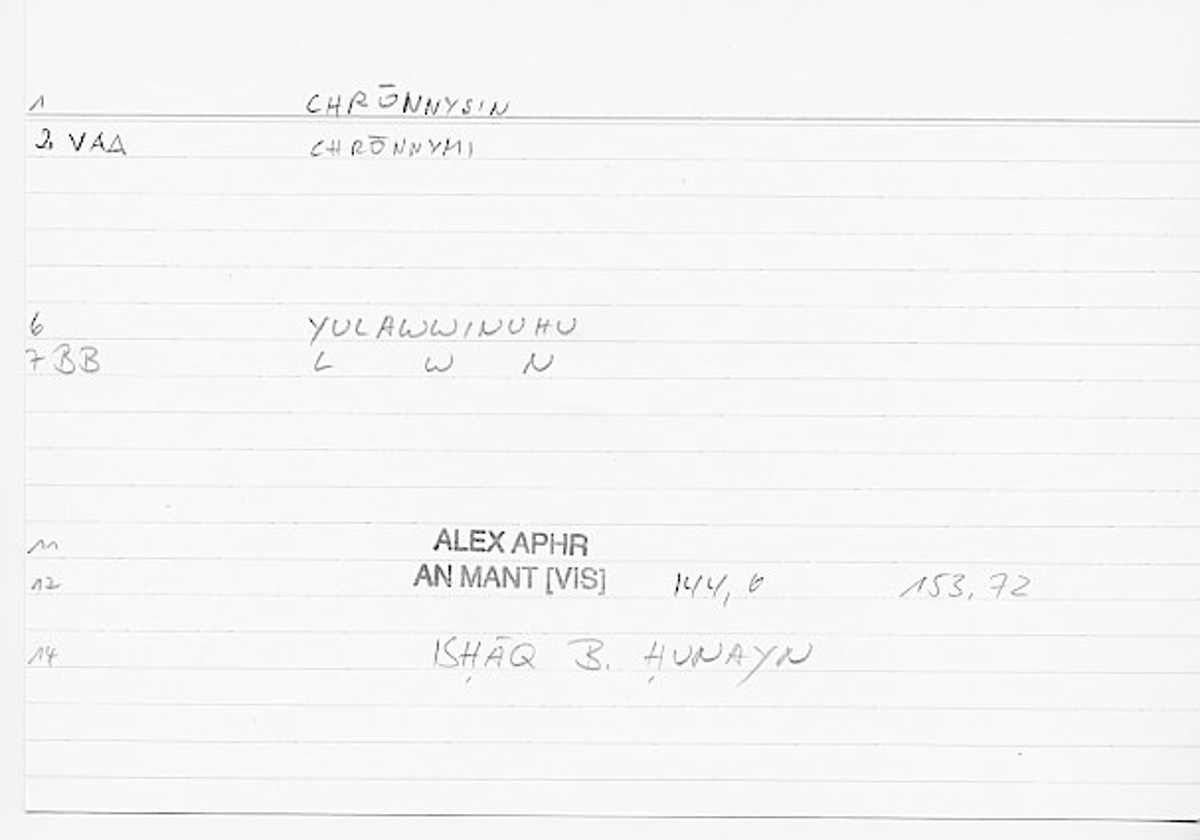 1 CHRŌNNYSIN
2. VAA CHRŌNNYMI
6 YULAWWINUHU
7 BB L W N
11 ALEX APHR
12 AN MANT [ViS] 144, 6 153, 72
14 ISḤĀQ B. ḤUNAYN